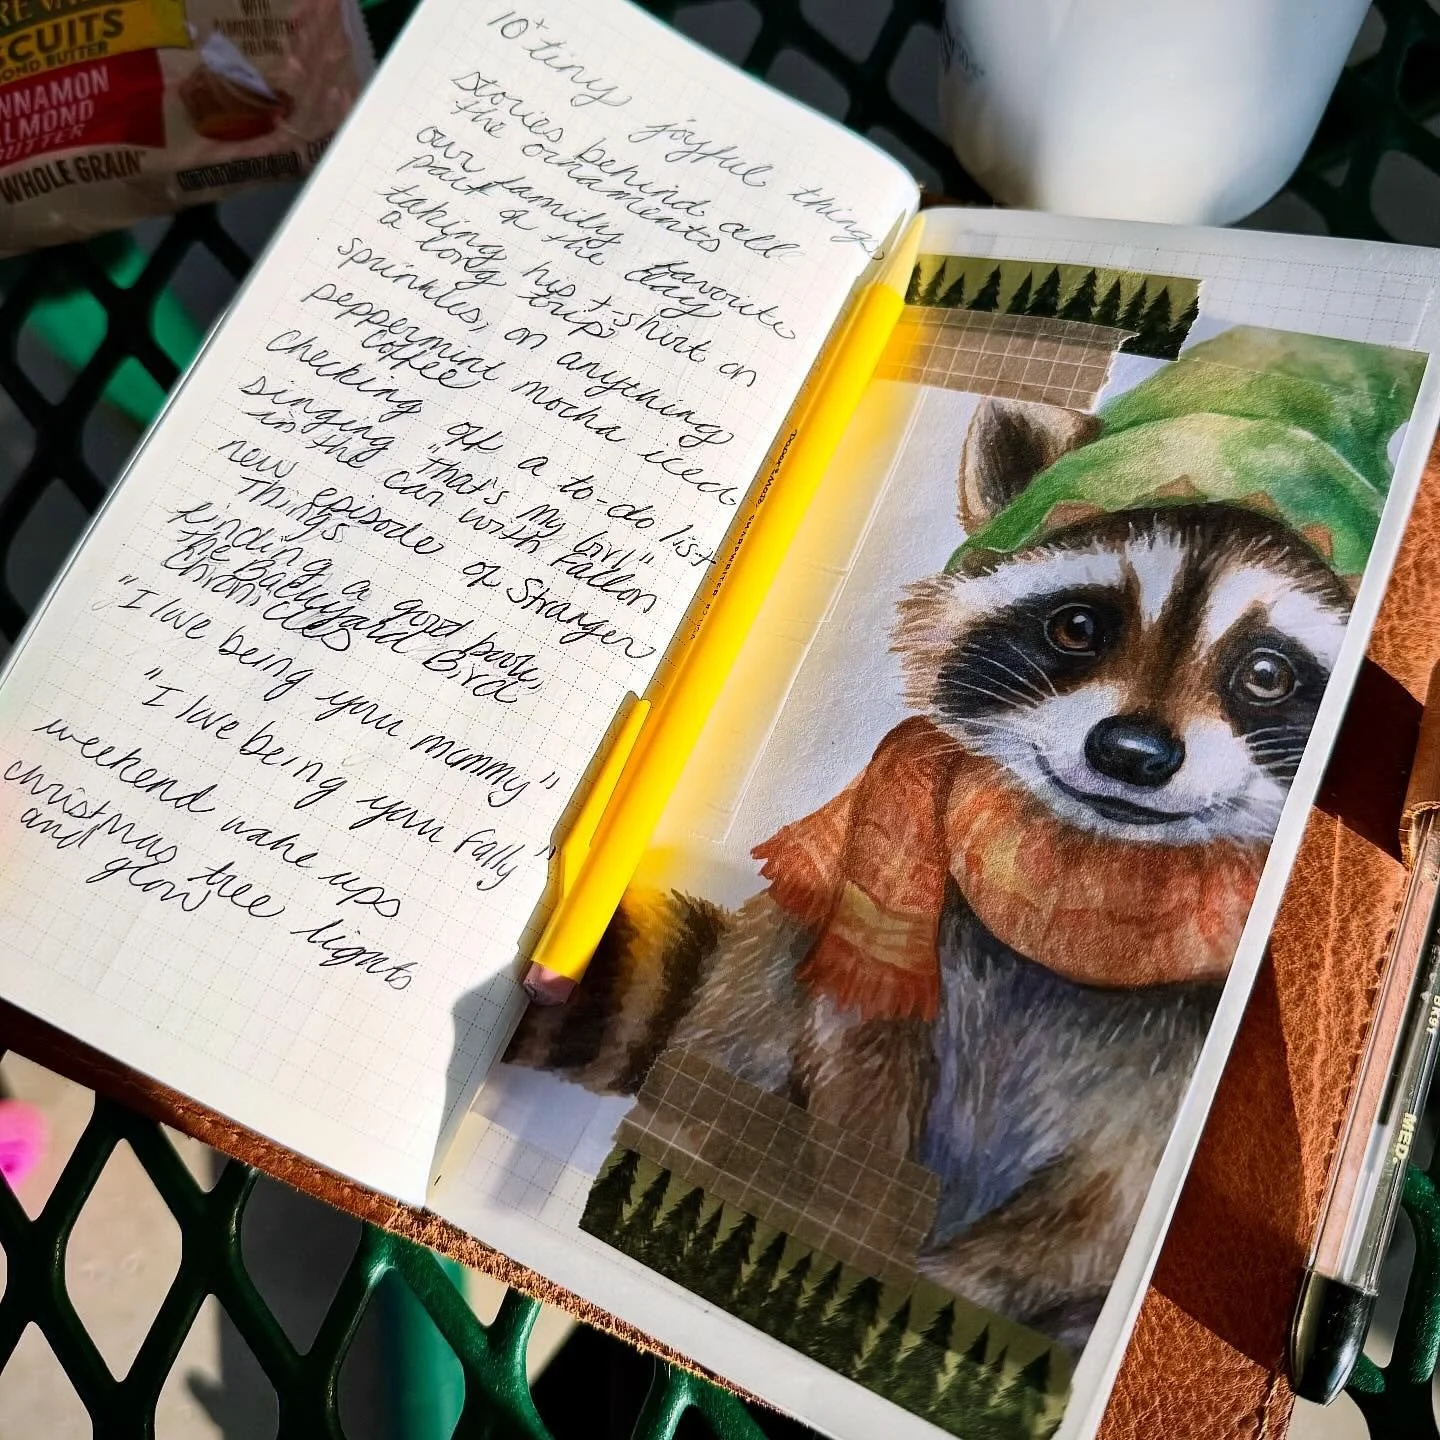 RE VA
SCUITS
OND BUTTER
NNAMON
LMOND
BUTTER
WHOLE GRAIN
WITH
ALMOND BUTTER
FILLING
10+ tiny joyful things
stories behind all
the ornaments
our family favorite
part of the day
taking his t-shirt on
a long trip
sprinkles, on anything
peppermint mocha iced
coffee
checking off a to-do list
singing "that's my girl"
in the car with Fallon
new episode of Stranger
Things
finding a good book,
the Backyard Bird
Chronicles
"I love being your mommy"
"I love being your Fally"
weekend wake ups
christmas tree lights
and glow
PaperMate SHARPWRITER
BK91
MED.